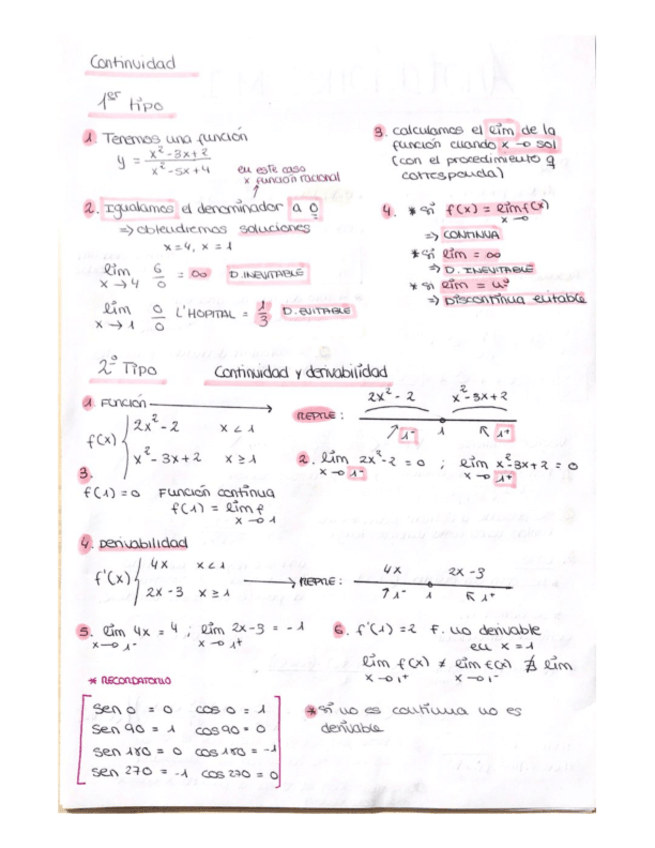 Continuidad
1er tipo
1. Tenemos una función
y = x²-3x+2 / x²-5x+4
en este caso
x función racional
2. Igualamos el denominador a 0
⇒ obtendremos soluciones
x=4, x=1
lim x→4 6/0 = ∞ D.INEVITABLE
lim x→1 0/0 L'HOPITAL = 1/3 D.EVITABLE
3. calculamos el lim de la
función cuando x→sol
(con el procedimiento q
corresponda)
4. * si f(x) = lim f(x) x→0
⇒ CONTINUA
* si lim = ∞
⇒ D. INEVITABLE
* si lim = nº
⇒ Discontinua evitable
2º Tipo Continuidad y derivabilidad
1. Función
f(x) { 2x²-2 x<1
x²-3x+2 x≥1
REPTE: 2x²-2 x²-3x+2
1⁻ 1 1⁺
2. lim x→1⁻ 2x²-2=0 ; lim x→1⁺ x²-3x+2=0
3.
f(1)=0 Función continua
f(1) = lim f x→1
4. Derivabilidad
f'(x) { 4x x<1
2x-3 x≥1
REPTE: 4x 2x-3
1⁻ 1 1⁺
5. lim x→1⁻ 4x=4 ; lim x→1⁺ 2x-3=-1
6. f'(1)=2 F. no derivable
en x=1
lim x→1⁺ f(x) ≠ lim x→1⁻ f(x) ∄ lim
* RECORDATORIO
sen 0 = 0 cos 0 = 1
sen 90 = 1 cos 90 = 0
sen 180 = 0 cos 180 = -1
sen 270 = -1 cos 270 = 0
* Si no es continua no es
derivable